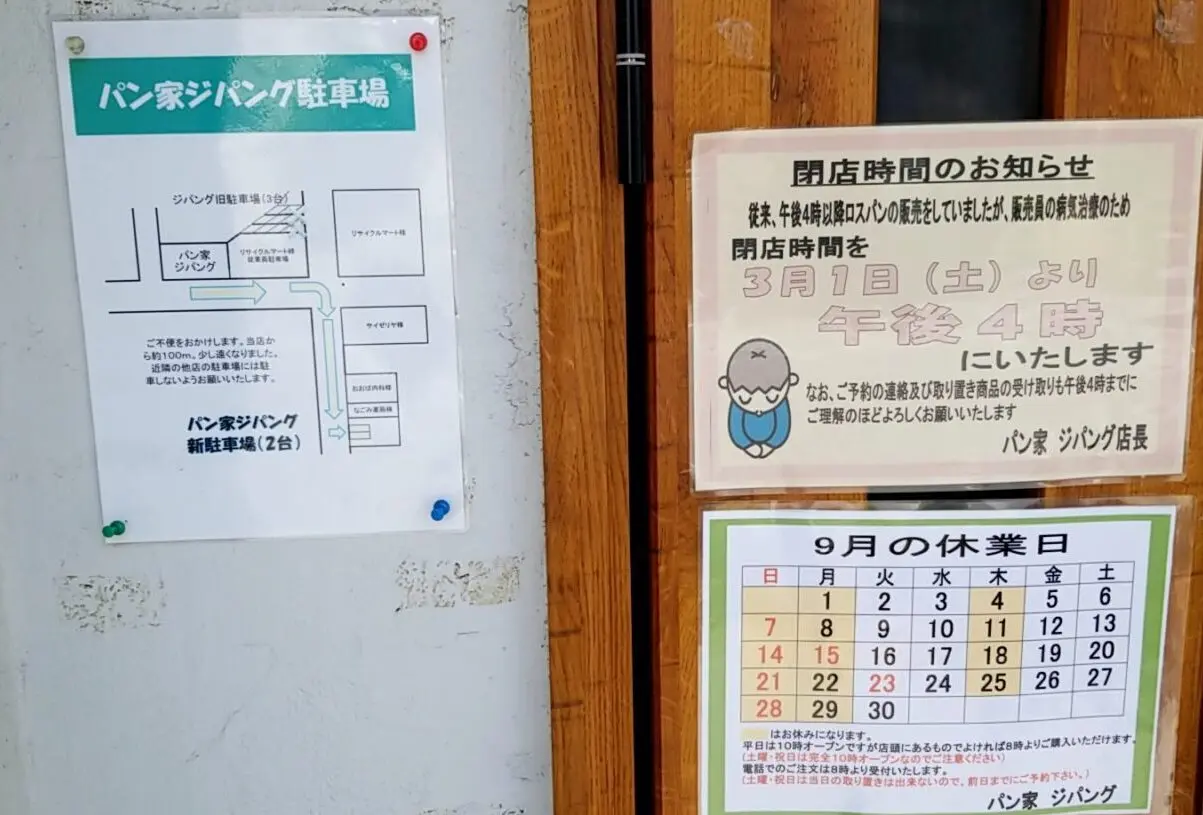 パン家ジパング駐車場
ジパング旧駐車場(3台)
パン家
ジパング
リサイクルマート様
従業員駐車場
リサイクルマート様
サイゼリヤ様
おおば内科様
なごみ薬局様
ご不便をおかけします。当店か
ら約100m。少し遠くなりました。
近隣の他店の駐車場には駐
車しないようお願いいたします。
パン家ジパング
新駐車場(2台)
閉店時間のお知らせ
従来、午後4時以降ロスパンの販売をしていましたが、販売員の病気治療のため
閉店時間を
3月1日(土)より
午後4時
にいたします
なお、ご予約の連絡及び取り置き商品の受け取りも午後4時までに
ご理解のほどよろしくお願いいたします
パン家 ジパング店長
9月の休業日
日 月 火 水 木 金 土
1 2 3 4 5 6
7 8 9 10 11 12 13
14 15 16 17 18 19 20
21 22 23 24 25 26 27
28 29 30
はお休みになります。
平日は10時オープンですが店頭にあるものでよければ8時よりご購入いただけます。
(土曜・祝日は完全10時オープンなのでご注意ください)
電話でのご注文は8時より受付いたします。
(土曜・祝日は当日の取り置きは出来ないので、前日までにご予約下さい。)
パン家 ジパング